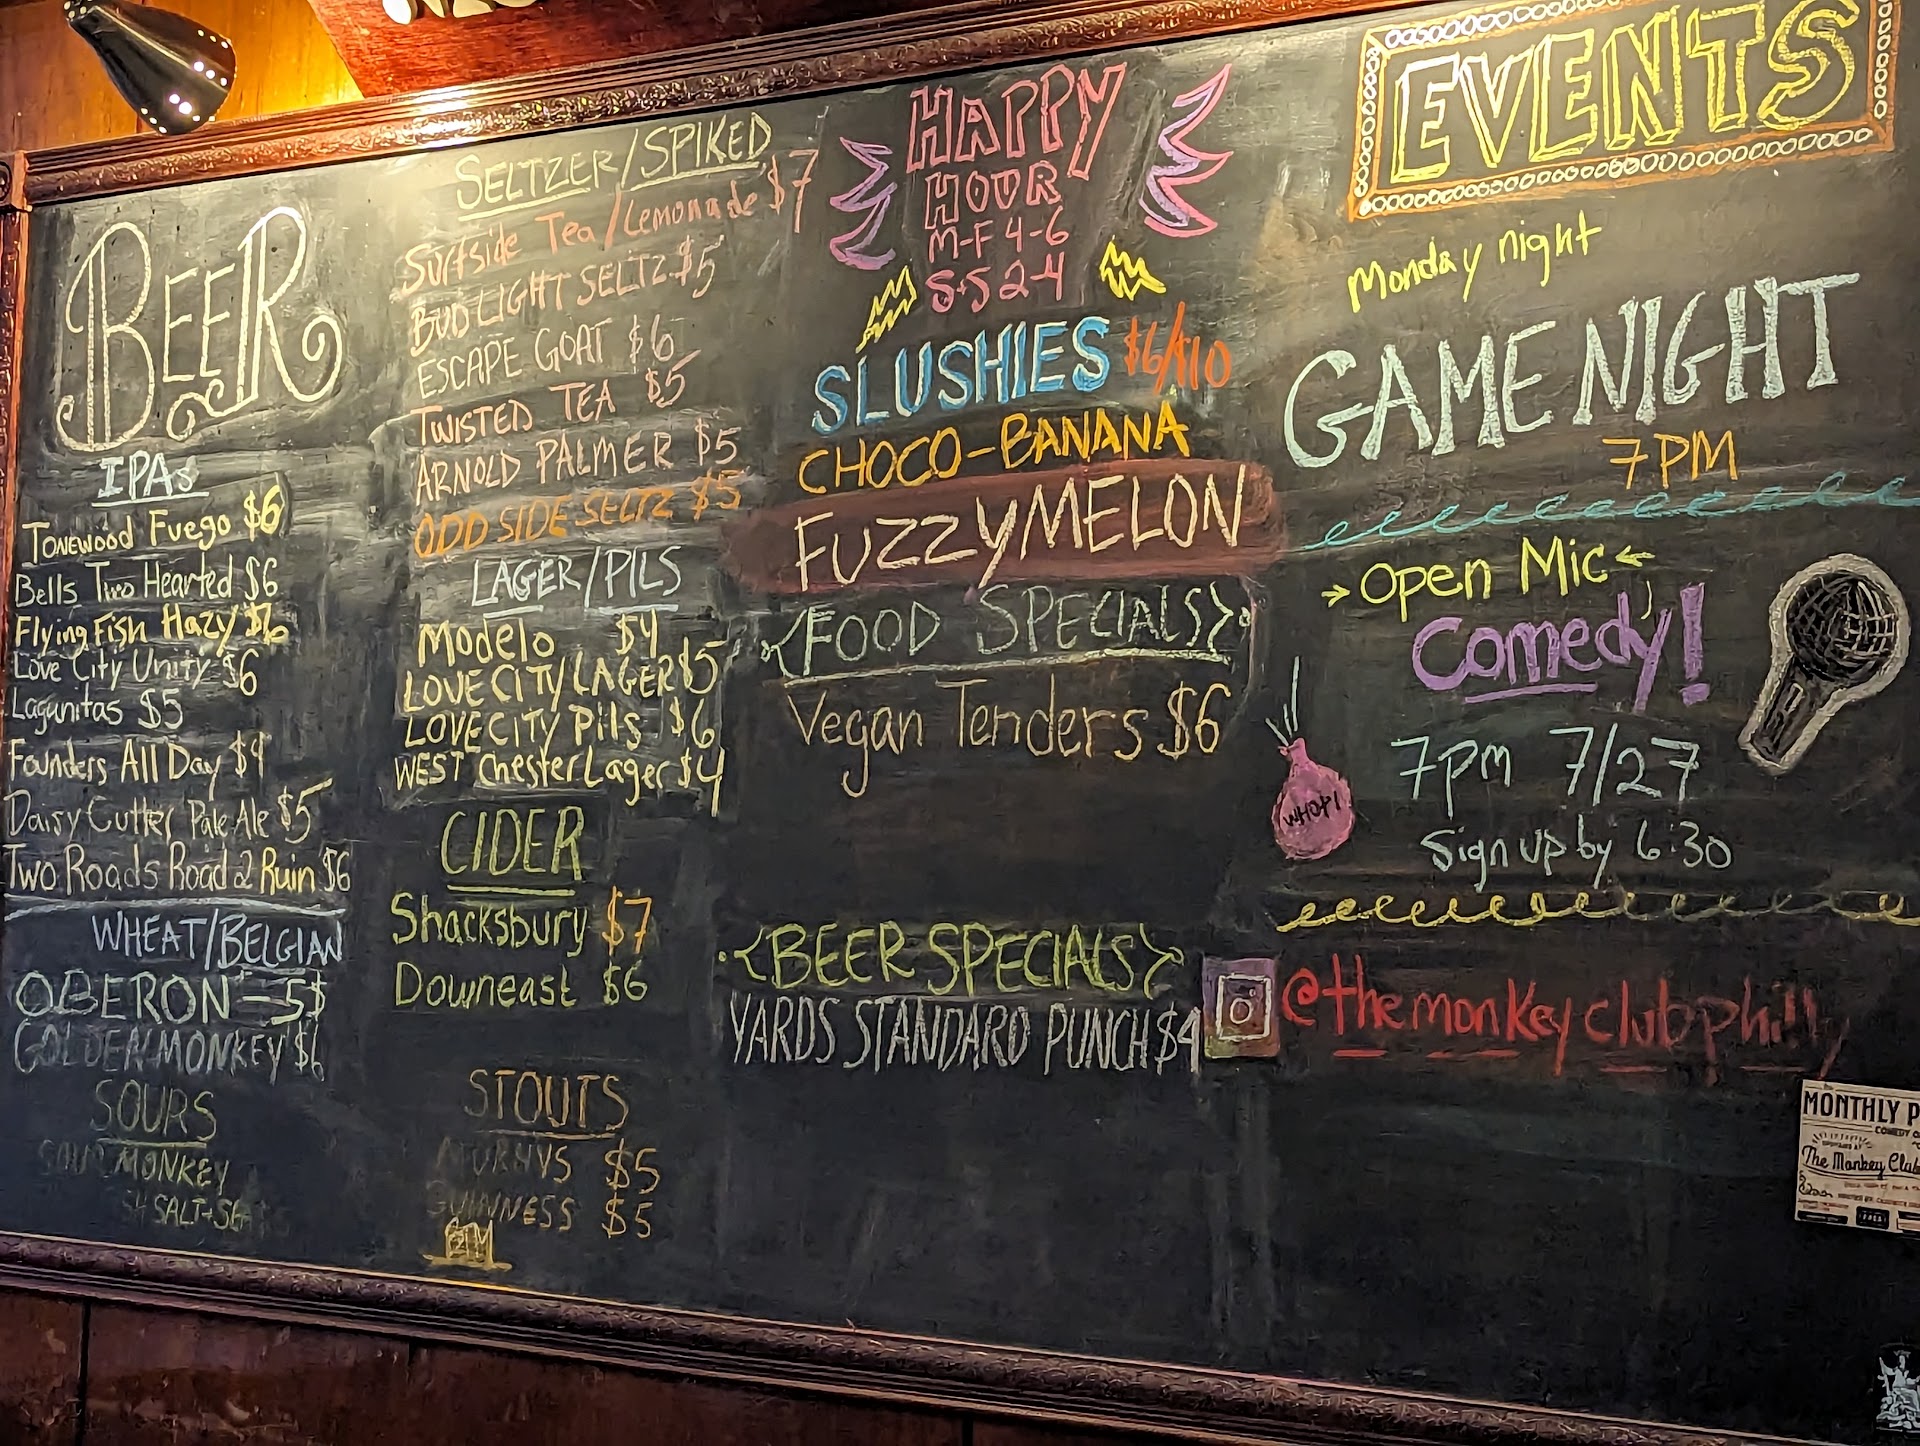 BEER
IPAs
Tonewood Fuego $6
Bells Two Hearted $6
Flying Fish Hazy
Love City Unity $6
Lagunitas $5
Founders All Day $4
Daisy Cutter Pale Ale $5
Two Roads Road 2 Ruin $6
WHEAT/BELGIAN
OBERON - 5$
GOLDEN MONKEY $6
SOURS
SOUR MONKEY
SALT-SEA
SELTZER/SPIKED
Surfside Tea/Lemonade $7
BUD LIGHT SELTZ $5
ESCAPE GOAT $6
TWISTED TEA $5
ARNOLD PALMER $5
ODD SIDE SELTZ $5
LAGER/PILS
Modelo $4
LOVE CITY LAGER $5
LOVE CITY Pils $6
WEST Chester Lager $4
CIDER
Shacksbury $7
Downeast $6
STOUTS
MURPHYS $5
GUINNESS $5
HAPPY
HOUR
M-F 4-6
S-S 2-4
SLUSHIES $6/$10
CHOCO-BANANA
FUZZY MELON
FOOD SPECIALS
Vegan Tenders $6
BEER SPECIALS
YARDS STANDARD PUNCH $4
EVENTS
Monday night
GAME NIGHT
7PM
Open Mic
Comedy!
7pm 7/27
Sign up by 6:30
WHOPI
@themonkeyclubphilly
MONTHLY P
COMEDY O
The Monkey Club
FREE